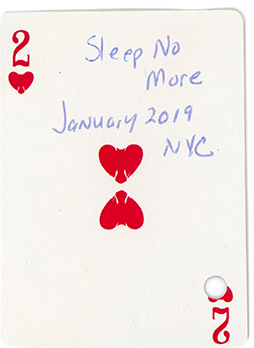 2
Sleep No
More
January 2019
NYC
2